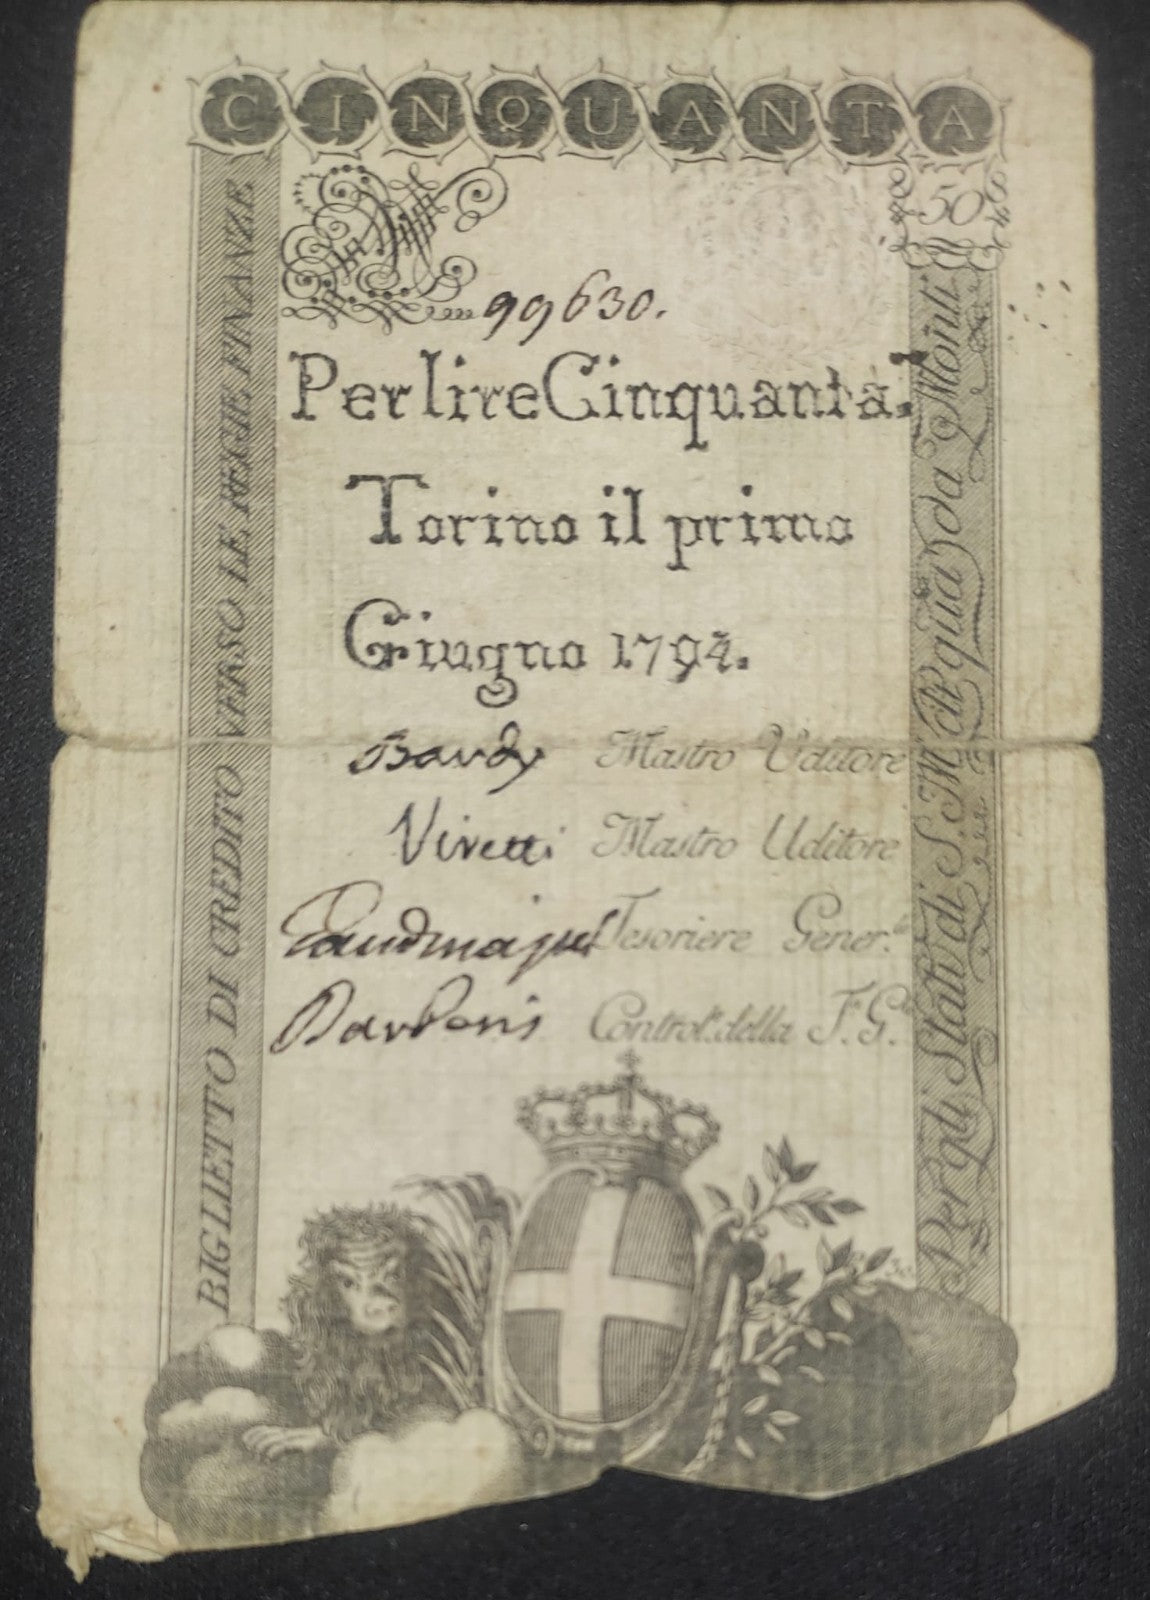 CINQUANTA
50
BIGLIETTO DI CREDITO VERSO LE REGIE FINANZE
N
99630.
Per lire Cinquanta.
Torino il primo
Giugno 1794.
Mastro Uditore
Vivetti Mastro Uditore
Tesoriere Gener.le
Control.e della T. G.le
Per gli Stati di S. M. di qua da Monti